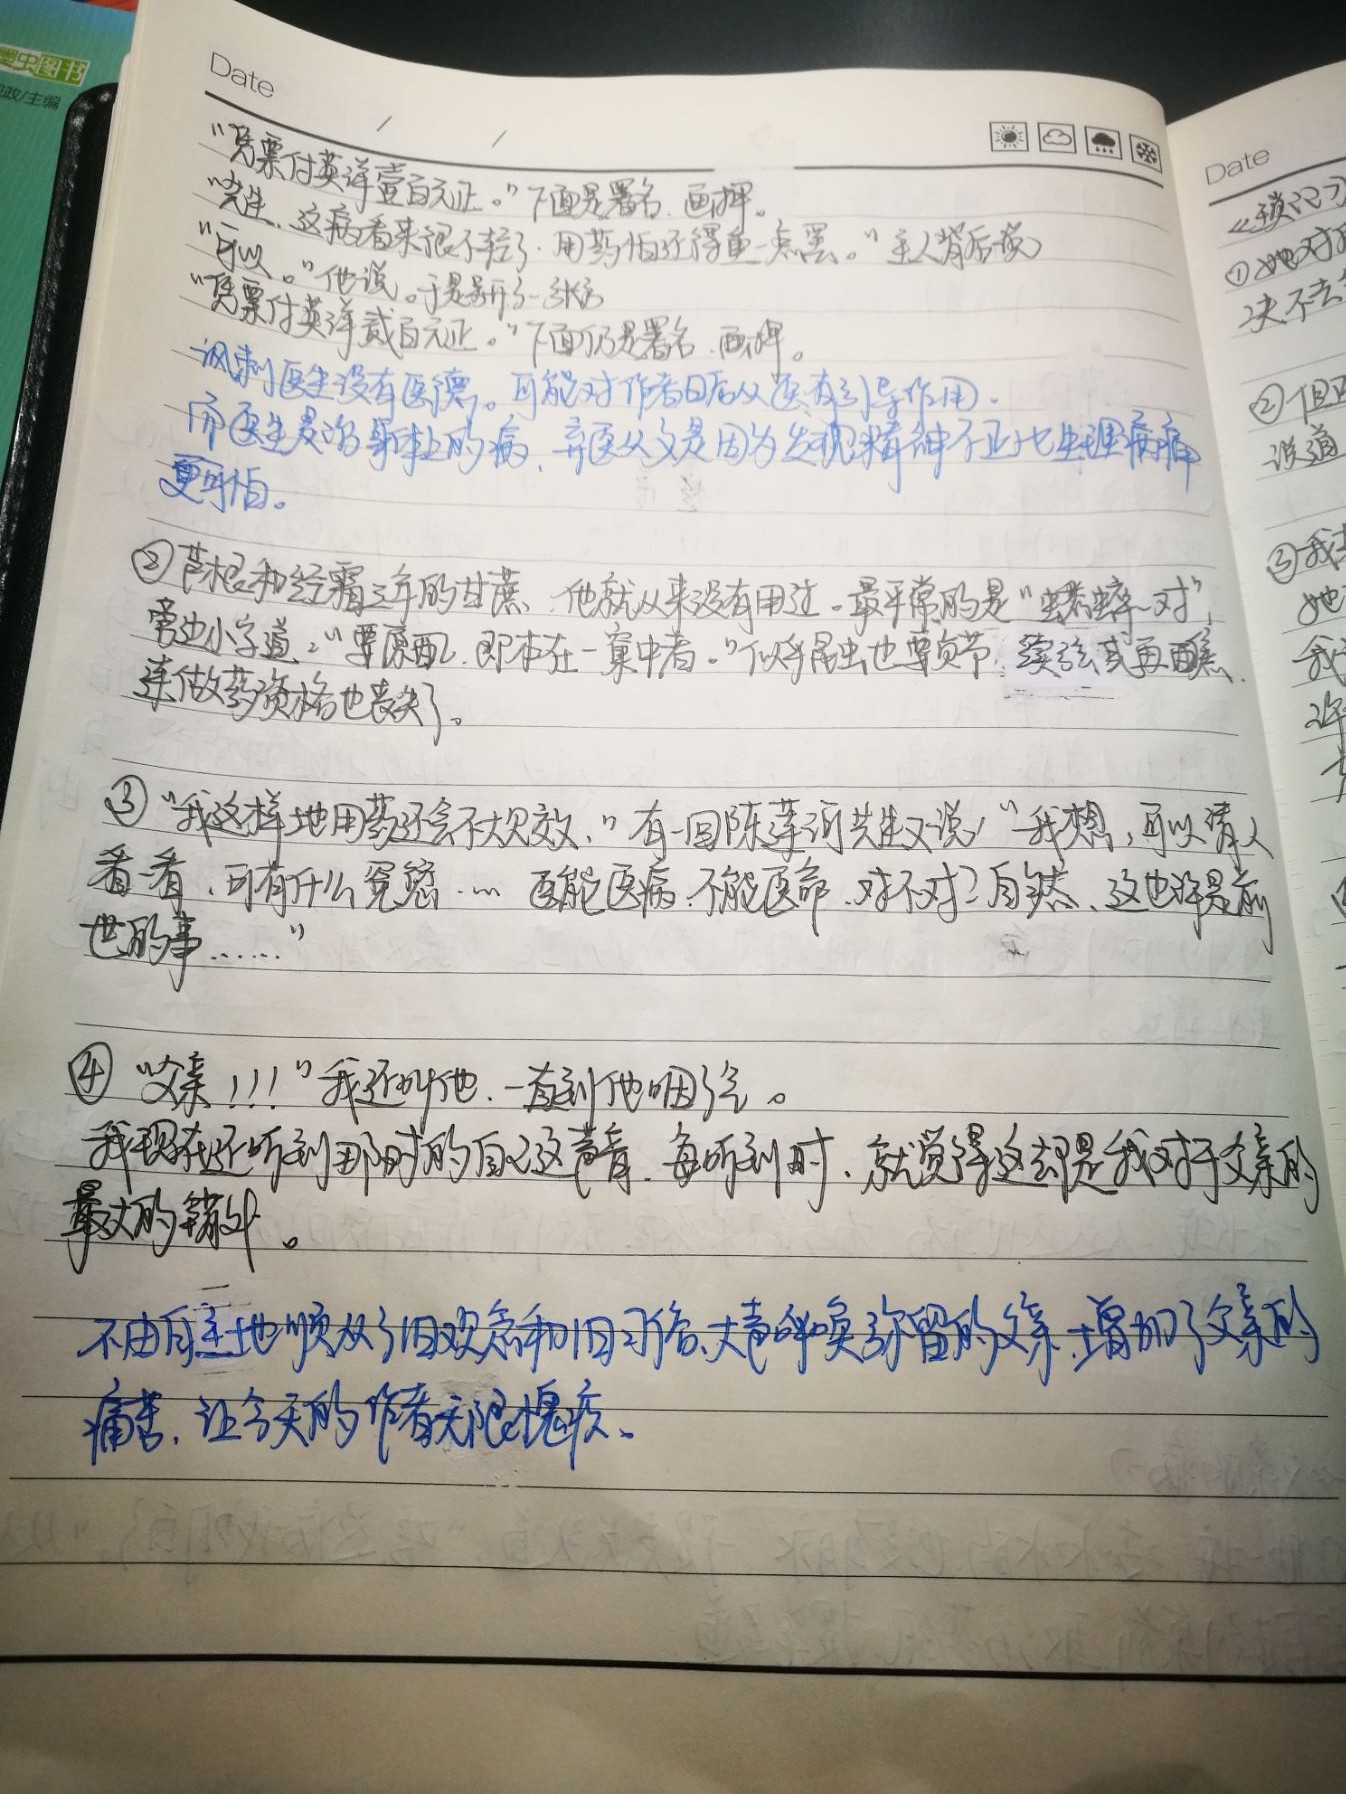 虫图书
政/主编
Date
“凭票付英洋壹百元正。”下面是署名、画押。
“先生，这病看来很不轻了，用药怕还得重一点罢。”主人背后说
“可以。”他说。于是另开了一张方
“凭票付英洋贰百元正。”下面仍是署名、画押。
讽刺医生没有医德。可能对作者日后从医有引导作用。
而医生是治躯壳的病，弃医从文是因为发现精神不正比生理病痛
更可怕。
②芦根和经霜三年的甘蔗，他就从来没有用过。最平常的是“蟋蟀一对”，
旁边小字道：“要原配，即本在一窠中者。”似乎昆虫也要贞节，续弦或再醮，
连做药资格也丧失了。
③“我这样地用药还会不大见效，”有一回陈莲河先生又说，“我想，可以请人
看一看，可有什么冤愆…… 医能医病，不能医命，对不对？自然，这也许是前
世的事……”
④“父亲！！！”我还叫他，一直到他咽了气。
我现在还听到那时的自己这声音，每听到时，就觉得这却是我对于父亲的
最大的错处。
不由自主地顺从了旧观念和旧习俗，大声呼唤弥留的父亲，增加了父亲的
痛苦，让今天的作者无限愧疚。
Date
①她对
决不去
②但
说道
③我
她
我
许